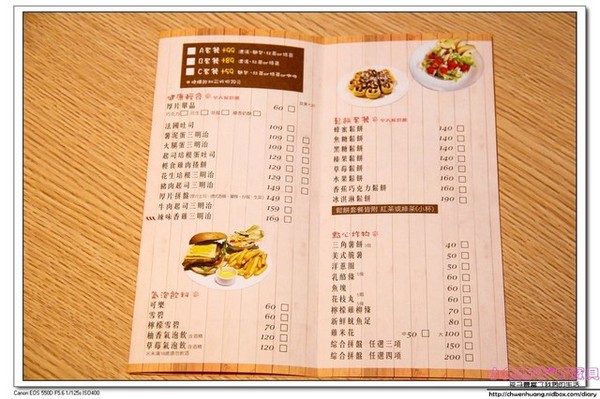 A套餐 +99
B套餐 +89
C套餐 +59
健康輕食
厚片單品 60
法國吐司 109
薯泥蛋三明治 109
火腿蛋三明治 109
起司培根蛋吐司 129
輕食雞肉捲餅 129
花生培根三明治 129
豬肉起司三明治 149
厚片拼盤 149
牛肉起司三明治 159
辣味香雞三明治 169
氣泡飲料
可樂 60
雪碧 60
檸檬雪碧 70
柚香氣泡飲 120
草莓氣泡飲 120
鬆餅套餐
蜂蜜鬆餅 140
焦糖鬆餅 140
黑糖鬆餅 140
榛果鬆餅 140
草莓鬆餅 160
水果鬆餅 160
香蕉巧克力鬆餅 160
冰淇淋鬆餅 190
鬆餅套餐皆附 紅茶或綠茶(小杯)
點心炸物
三角薯餅 40
美式脆薯 50
洋蔥圈 60
乳酪條 60
魚塊 60
花枝丸 60
檸檬雞柳條 70
新鮮魷魚足 80
雞米花 中50 大100
綜合拼盤 任選三項 150
綜合拼盤 任選四項 200
Canon EOS 550D F5.6 1/125s ISO400
http://chuenhuang.nidbox.com/diary